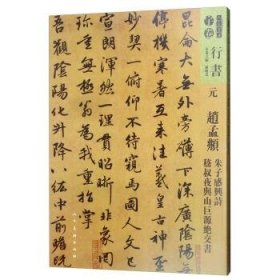 行書
元
趙孟頫
朱子感興詩
嵇叔夜與山巨源絕交書
崑崙大無外旁薄下深廣陰陽無
停機寒暑互来往皇羲古神聖
妙契一俯仰不待窺馬圖人文已
宣朗渾然一理貫昭晰非象罔
珍重無極翁為我重指掌
吾觀陰陽化升降八紘中前瞻既